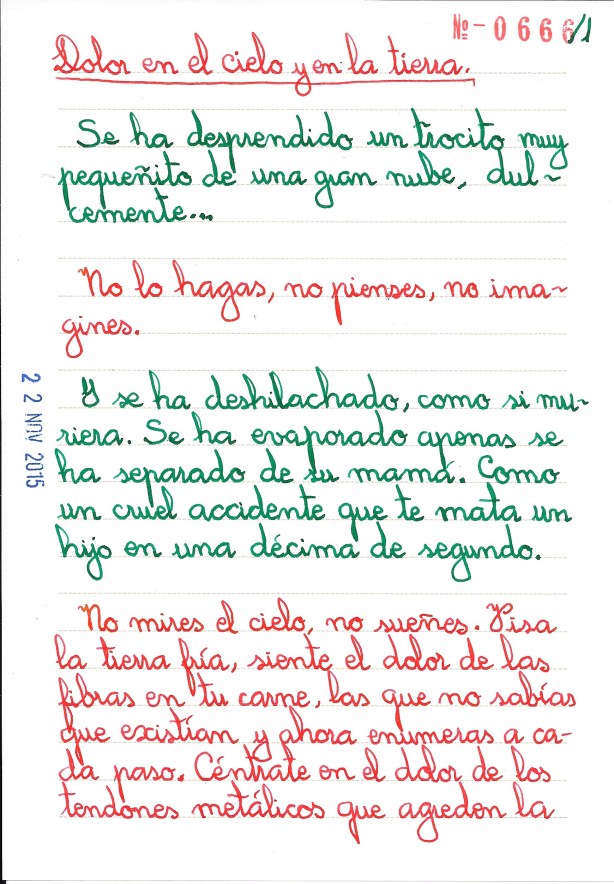 Nº-0666/1
Dolor en el cielo y en la tierra.
Se ha desprendido un trocito muy
pequeñito de una gran nube, dul~
cemente...
No lo hagas, no pienses, no ima~
gines.
22 NOV 2015
Y se ha deshilachado, como si mu-
riera. Se ha evaporado apenas se
ha separado de su mamá. Como
un cruel accidente que te mata un
hijo en una décima de segundo.
No mires el cielo, no sueñes. Pisa
la tierra fría, siente el dolor de las
fibras en tu carne, las que no sabías
que existían y ahora enumeras a ca-
da paso. Céntrate en el dolor de los
tendones metálicos que agreden la